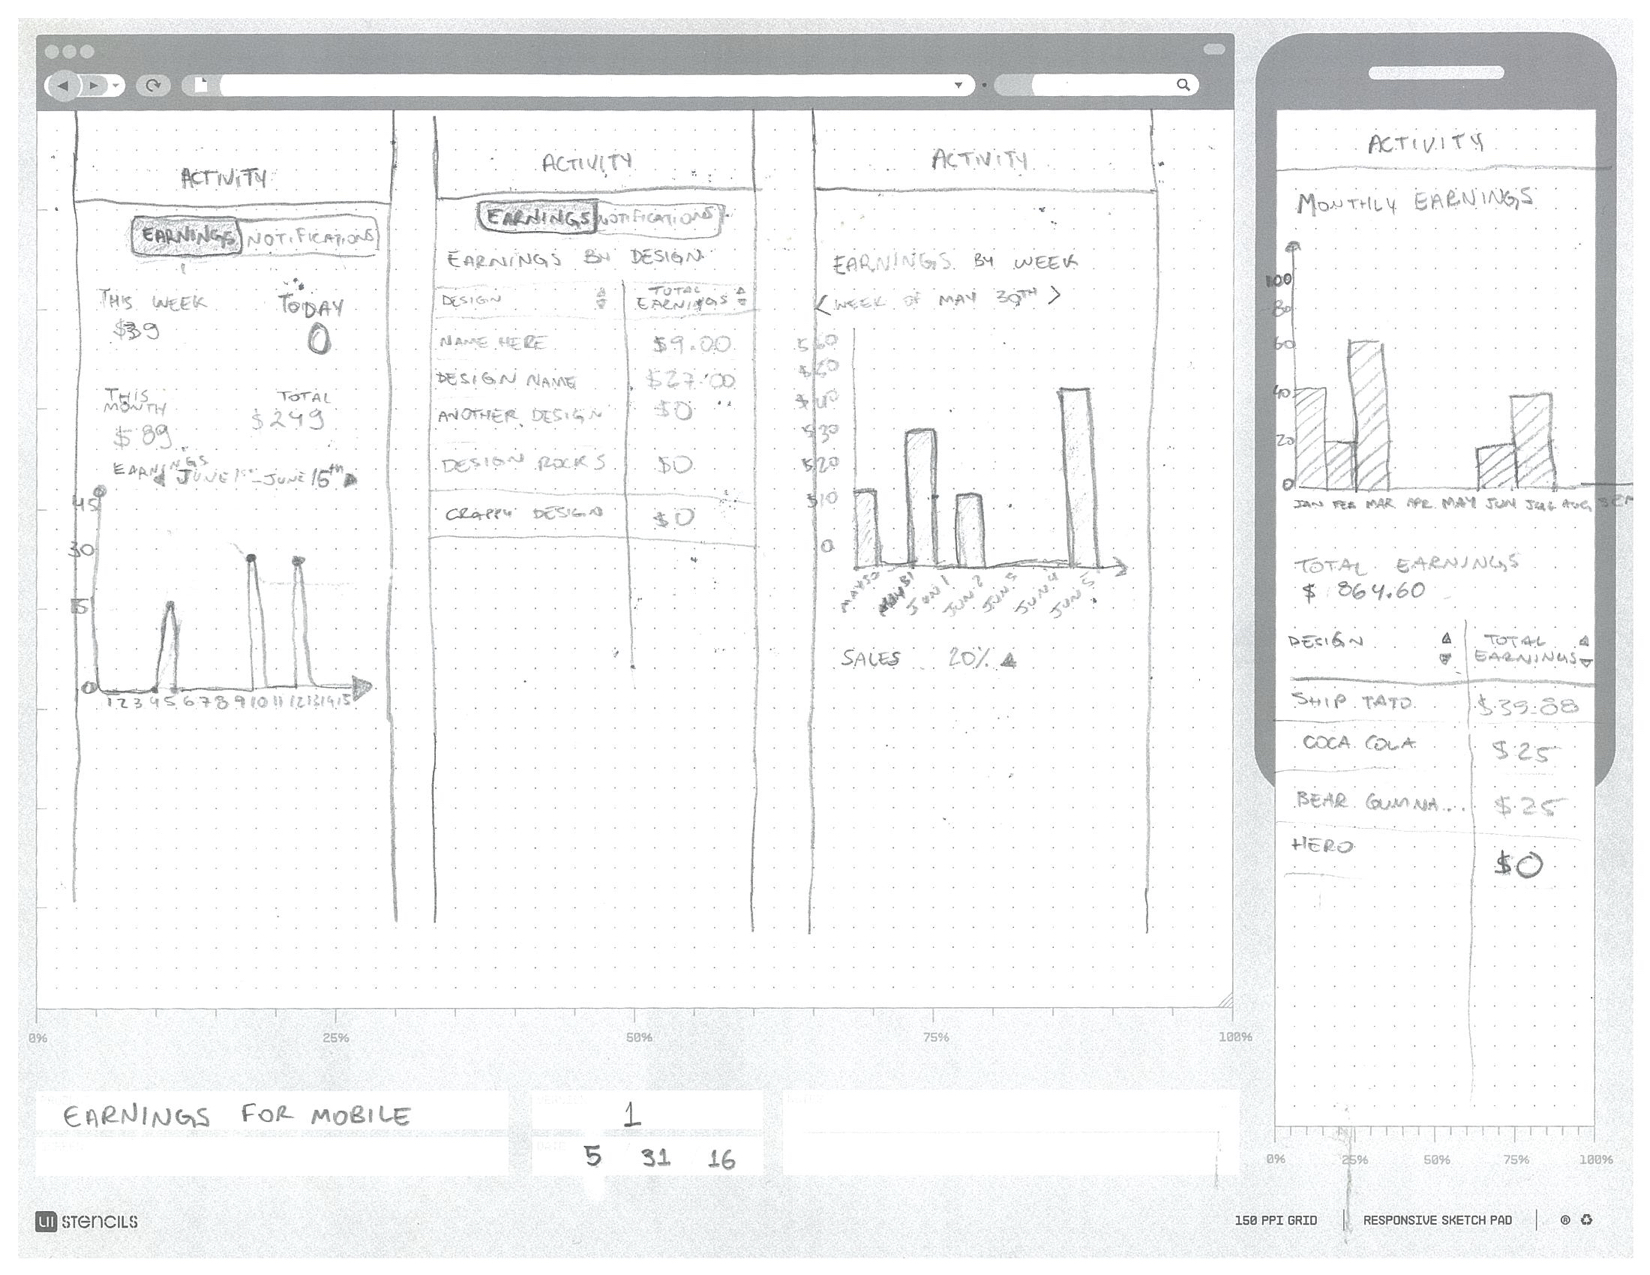 ACTIVITY
EARNINGS NOTIFICATIONS
THIS WEEK
$39
TODAY
0
THIS MONTH
$89
TOTAL
$249
EARNINGS
JUNE 1ST - JUNE 15th
45
30
15
0
1 2 3 4 5 6 7 8 9 10 11 12 13 14 15
ACTIVITY
EARNINGS NOTIFICATIONS
EARNINGS BY DESIGN
DESIGN TOTAL EARNINGS
NAME HERE $9.00
DESIGN NAME $27.00
ANOTHER DESIGN $0
DESIGN ROCKS $0
CRAPPY DESIGN $0
ACTIVITY
EARNINGS BY WEEK
< WEEK OF MAY 30TH >
$60
$50
$40
$30
$20
$10
0
MAY 30 MAY 31 JUN 1 JUN 2 JUN 3 JUN 4 JUN 5
SALES 20%
ACTIVITY
MONTHLY EARNINGS
100
80
60
40
20
0
JAN FEB MAR APR MAY JUN JUL AUG SEP
TOTAL EARNINGS
$ 864.60
DESIGN TOTAL EARNINGS
SHIP TATO $39.88
COCA COLA $25
BEAR GUMNA... $25
HERO $0
0% 25% 50% 75% 100%
0% 25% 50% 75% 100%
EARNINGS FOR MOBILE
1
5 31 16
UI STENCILS
150 PPI GRID | RESPONSIVE SKETCH PAD | ®